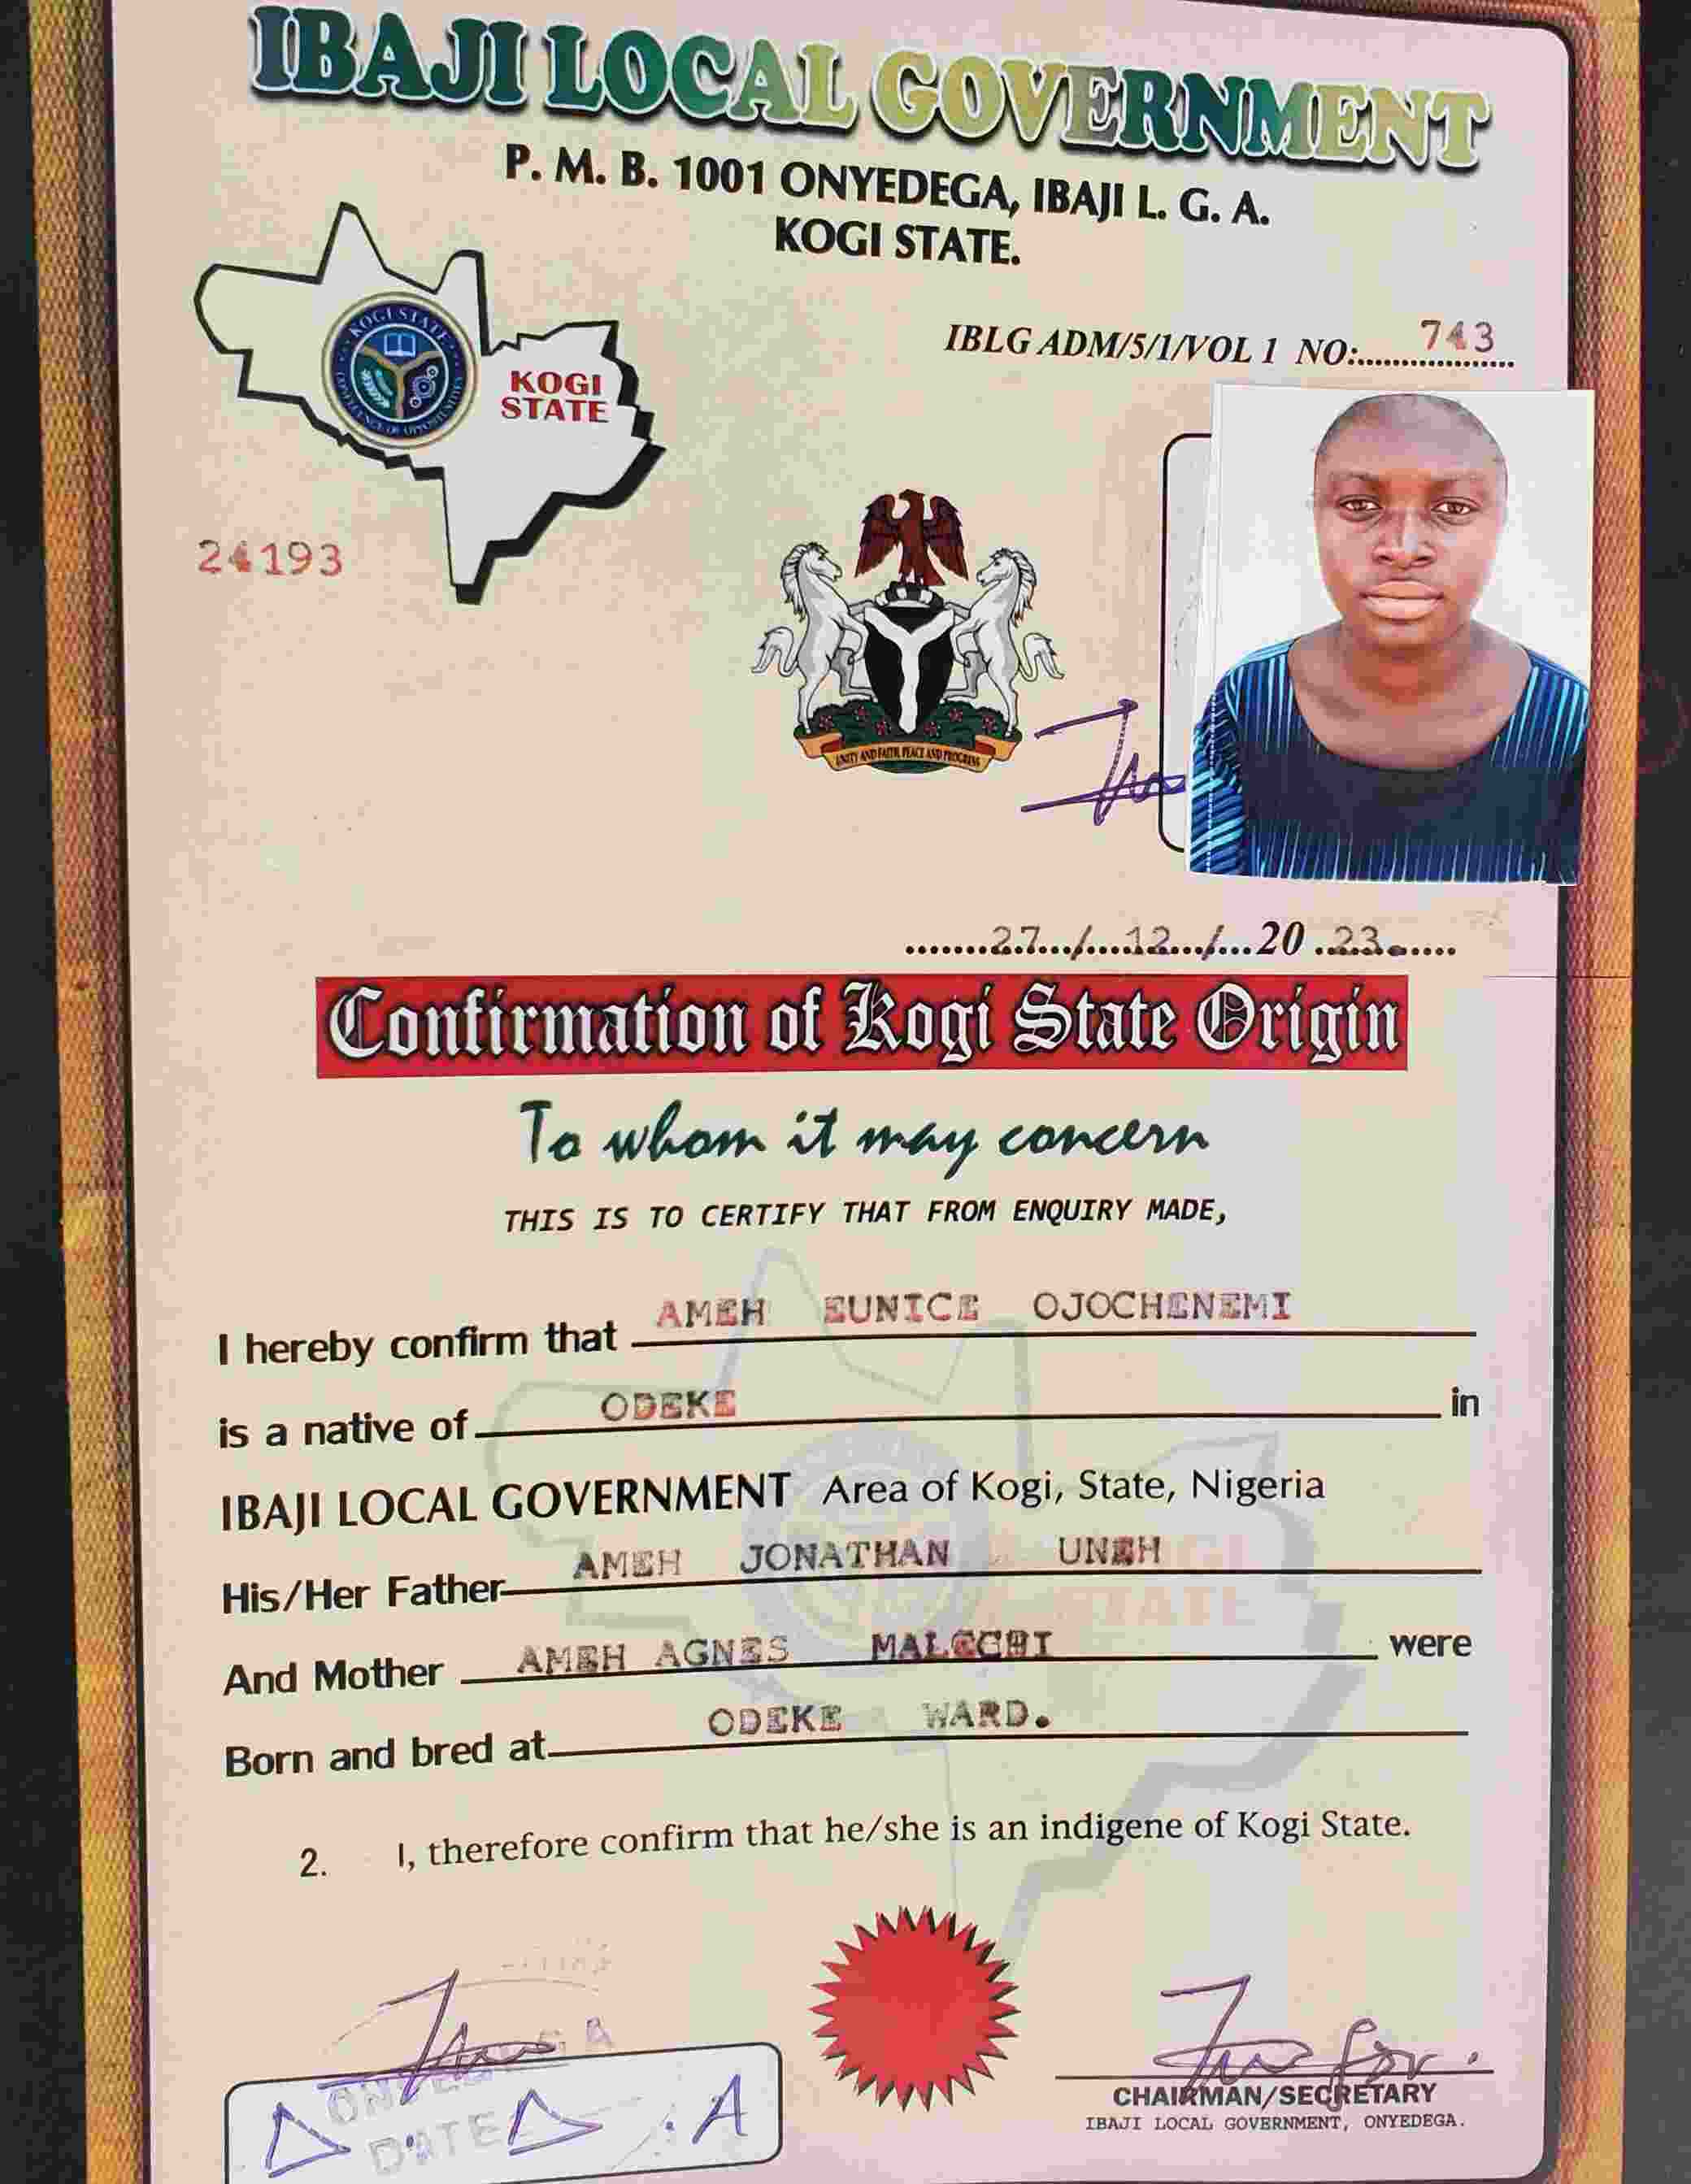 IBAJI LOCAL GOVERNMENT
P. M. B. 1001 ONYEDEGA, IBAJI L. G. A.
KOGI STATE.
IBLG ADM/5/1/VOL 1 NO:..... 743
KOGI STATE
CONFLUENCE OF OPPORTUNITIES
KOGI
STATE
24193
UNITY AND FAITH, PEACE AND PROGRESS
.......27.../...12.../...20..23......
Confirmation of Kogi State Origin
To whom it may concern
THIS IS TO CERTIFY THAT FROM ENQUIRY MADE,
I hereby confirm that AMEH EUNICE OJOCHENEMI
is a native of ODEKE in
IBAJI LOCAL GOVERNMENT Area of Kogi, State, Nigeria
His/Her Father AMEH JONATHAN UNEH
And Mother AMEH AGNES were
Born and bred at ODEKE WARD.
2. I, therefore confirm that he/she is an indigene of Kogi State.
for.
CHAIRMAN/SECRETARY
IBAJI LOCAL GOVERNMENT, ONYEDEGA.
DATE